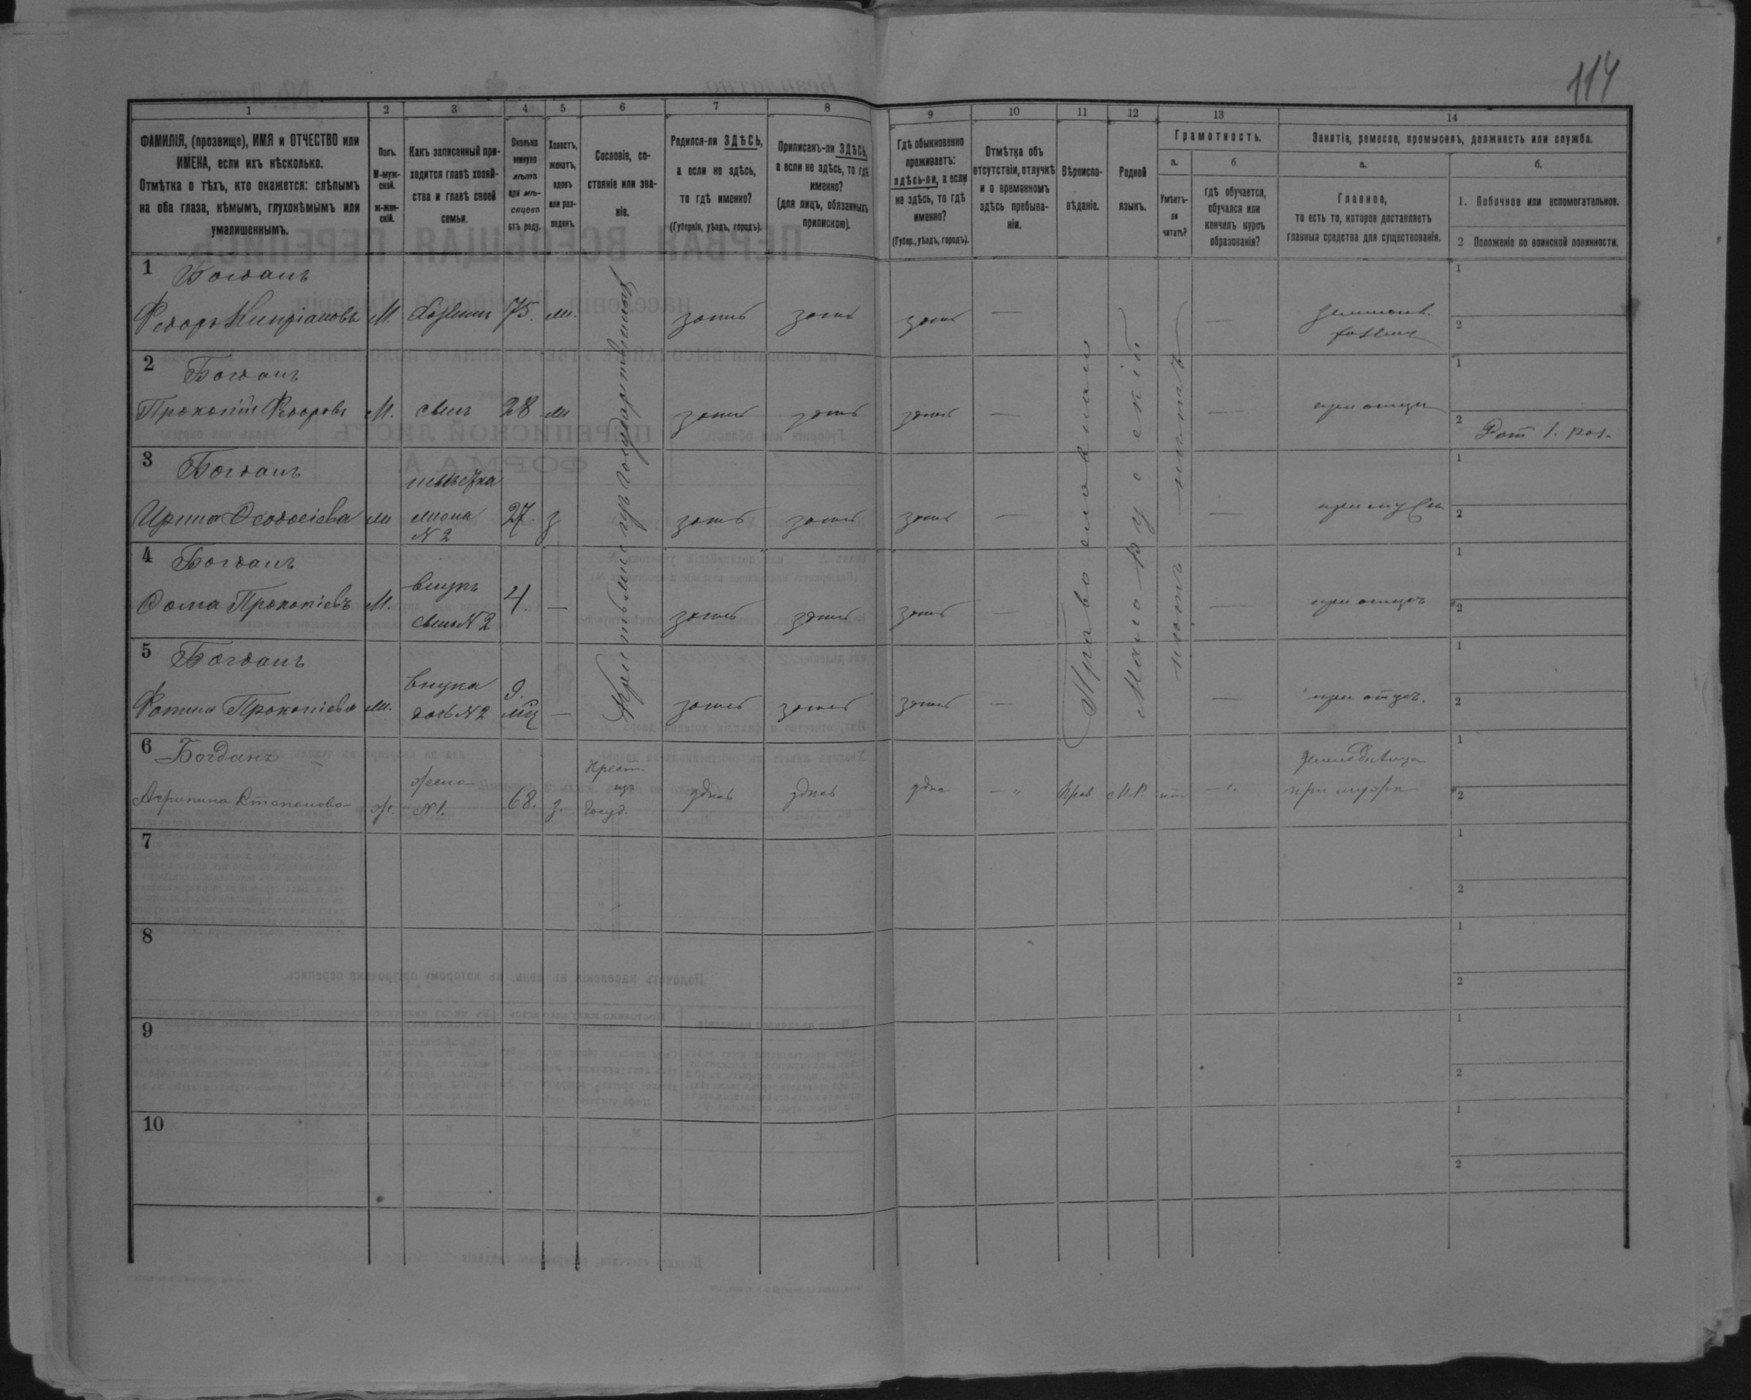 114
1
2
3
4
5
6
7
8
9
10
11
12
13
14
ФАМИЛІЯ, (прозвище), ИМЯ и ОТЧЕСТВО или
ИМЕНА, если ихъ нѣсколько.
Отмѣтка о тѣхъ, кто окажется: слѣпымъ
на оба глаза, нѣмымъ, глухонѣмымъ или
умалишеннымъ.
Полъ.
М-муж-
ской.
ж-жен-
скій.
Какъ записанный при-
ходится главѣ хозяй-
ства и главѣ своей
семьи.
Сколько
минуло
лѣтъ
или мѣ-
сяцевъ
отъ роду.
Холостъ,
женатъ,
вдовъ
или раз-
веденъ.
Сословіе, со-
стояніе или зва-
ніе.
Родился-ли ЗДѢСЬ,
а если не здѣсь,
то гдѣ именно?
(Губернія, уѣздъ, городъ).
Приписанъ-ли ЗДѢСЬ,
а если не здѣсь, то гдѣ
именно?
(для лицъ, обязанныхъ
припискою).
Гдѣ обыкновенно
проживаетъ:
здѣсь-ли, а если
не здѣсь, то гдѣ
именно?
(Губер., уѣздъ, городъ).
Отмѣтка объ
отсутствіи, отлучкѣ
и о временномъ
здѣсь пребыва-
ніи.
Вѣроиспо-
вѣданіе.
Родной
языкъ.
Грамотность.
а.
Умѣетъ-
ли
читать?
б
гдѣ обучается,
обучался или
кончилъ курсъ
образованія?
Занятія, ремесло, промыселъ, должность или служба.
а.
Главное,
то есть то, которое доставляетъ
главныя средства для существованія.
б.
1. Побочное или вспомогательное.
2 Положеніе по воинской повинности.
1 Богданъ
Федоръ Кипріановъ М. Хозяинъ 75. ж. здесь здесь здесь —
1
2
2 Богданъ
Прокопій Федоровъ М. сынъ 28 ж здесь здесь здесь — при отцѣ
1
2 Рат 1. раз.
3 Богданъ
невѣстка
Ирина Феодосіева ж жена 27 з здесь здесь здесь — при мужѣ
N 2
1
2
4 Богданъ
внукъ
Фома Прокопіевъ М. 4 — здесь здесь здесь — при отцѣ
сынъ N 2
1
2
5 Богданъ
внука 9.
Прокопіева ж. дочь N 2 мц — здесь здесь здесь — при отцѣ.
1
2
Крестьянинъ изъ государственныхъ
Православная
Мало-Русскій
нѣтъ
6 Богданъ
Крест.
жена изъ
Агрипина Степанова ж. N 1. 68. з. Госуд. здѣсь здѣсь здѣсь — „ Прав М.Р. нѣт — „ при мужѣ
1
2
7
1
2
8
1
2
9
1
2
10
1
2